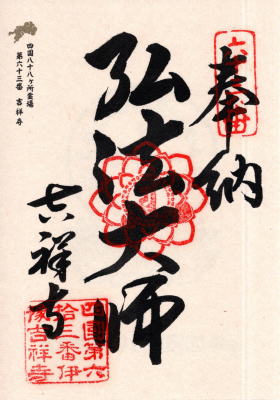 奉納
弘法大師
吉祥寺
四国八十八ヶ所霊場
第六十三番 吉祥寺
四国第六
拾三番伊
豫吉祥寺